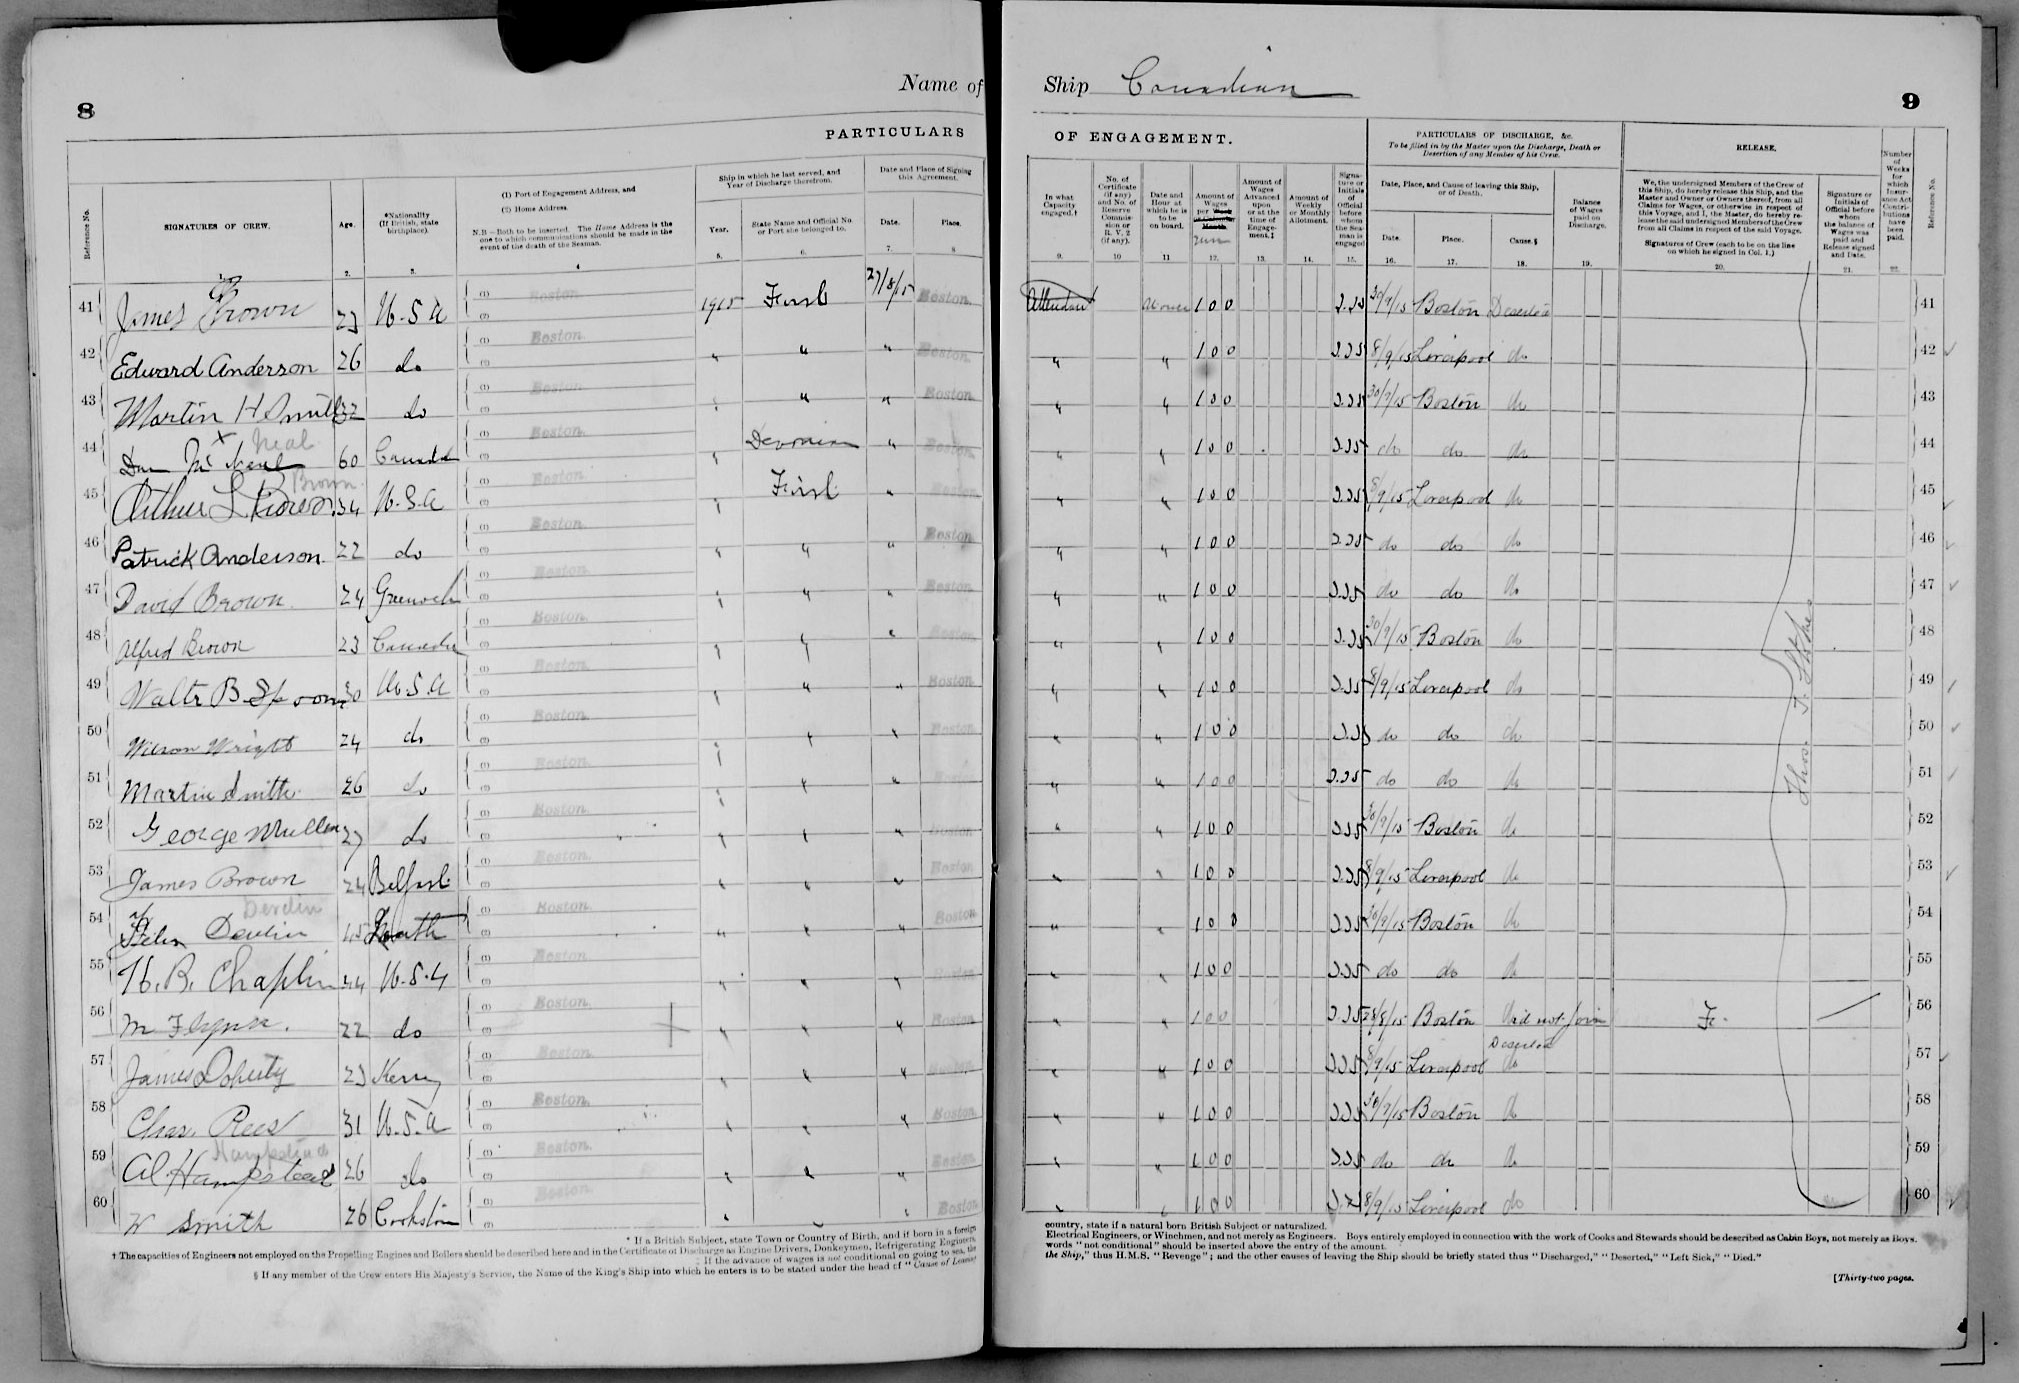 8
Name of
PARTICULARS
Reference No.
SIGNATURES OF CREW.
Age.
*Nationality (If British, state birthplace).
(1) Port of Engagement Address, and
(2) Home Address.
N.B.—Both to be inserted. The Home Address is the one to which communications should be made in the event of the death of the Seaman.
Ship in which he last served, and Year of Discharge therefrom.
Year.
State Name and Official No. or Port she belonged to.
Date and Place of Signing this Agreement.
Date.
Place.
2. 3. 4 5. 6. 7. 8
41 James Brown 23 U.S.A (1) Boston. (2) 1915 First 27/8/15 Boston.
42 Edward Anderson 26 do (1) Boston. (2) " " " Boston.
43 Martin H Smith 32 do (1) Boston. (2) " " " Boston
44 Dan Mc Neal Neal 60 Canada (1) Boston. (2) " Devonian " Boston
45 Arthur L. Brown Brown 34 U.S.A (1) Boston. (2) " First " Boston
46 Patrick Anderson. 22 do (1) Boston. (2) " " " Boston
47 David Brown. 24 Greenock (1) Boston. (2) " " " Boston
48 Alfred Brown 23 Canada (1) Boston. (2) " " " Boston
49 Walter B Spoon 30 U.S.A (1) Boston. (2) " " " Boston
50 Wilson Wright 24 do (1) Boston. (2) " " " Boston
51 Martin Smith 26 do (1) Boston. (2) " " " Boston
52 George Mullen 27 do (1) Boston. (2) " " " Boston
53 James Brown 24 Belfast (1) Boston. (2) " " " Boston
54 Felix Devlin Devlin 45 Louth (1) Boston. (2) " " " Boston
55 H. B. Chaplin 44 U.S.A (1) Boston. (2) " " " Boston
56 M Flynn. 22 do (1) Boston. (2) " " " Boston
57 James Doherty 23 Kerry (1) Boston. (2) " " " Boston
58 Chas. Rees 31 U.S.A (1) Boston. (2) " " " Boston
59 Al Hampstead Hampstead 26 do (1) Boston. (2) " " " Boston
60 W Smith 26 Cookstown (1) Boston. (2) " " " Boston
* If a British Subject, state Town or Country of Birth, and if born in a foreign
† The capacities of Engineers not employed on the Propelling Engines and Boilers should be described here and in the Certificate of Discharge as Engine Drivers, Donkeymen, Refrigerating Engineers,
‡ If the advance of wages is not conditional on going to sea, the
§ If any member of the Crew enters His Majesty's Service, the Name of the King's Ship into which he enters is to be stated under the head of "Cause of Leaving
Ship Canadian
9
OF ENGAGEMENT.
PARTICULARS OF DISCHARGE, &c.
To be filled in by the Master upon the Discharge, Death or Desertion of any Member of his Crew.
RELEASE.
In what Capacity engaged.†
No. of Certificate (if any) and No. of Reserve Commission or R.V. 2 (if any).
Date and Hour at which he is to be on board.
Amount of Wages per Week or Calendar Month.
Amount of Wages Advanced upon or at the time of Engagement.‡
Amount of Weekly or Monthly Allotment.
Signature or Initials of Official before whom the Seaman is engaged
Date, Place, and Cause of leaving this Ship, or of Death.
Date.
Place.
Cause.§
Balance of Wages paid on Discharge.
We, the undersigned Members of the Crew of this Ship, do hereby release this Ship, and the Master and Owner or Owners thereof, from all Claims for Wages, or otherwise in respect of this Voyage, and I, the Master, do hereby release the said undersigned Members of the Crew from all Claims in respect of the said Voyage.
Signatures of Crew (each to be on the line on which he signed in Col. 1.)
Signature or Initials of Official before whom the balance of Wages was paid and Release signed and Date.
Number of Weeks for which Insurance Act Contributions have been paid.
Reference No.
9. 10 11 12. 13. 14. 15. 16. 17. 18. 19. 20. 21. 22.
Attendant 1 0 0 30/9/15 Boston Deserted 41
" " 1 0 0 8/9/15 Liverpool do 42
" " 1 0 0 30/9/15 Boston do 43
" " 1 0 0 do do do 44
" " 1 0 0 8/9/15 Liverpool do 45
" " 1 0 0 do do do 46
" " 1 0 0 do do do 47
" " 1 0 0 30/9/15 Boston do 48
" " 1 0 0 8/9/15 Liverpool do 49
" " 1 0 0 do do do 50
" " 1 0 0 do do do 51
" " 1 0 0 30/9/15 Boston do 52
" " 1 0 0 8/9/15 Liverpool do 53
" " 1 0 0 30/9/15 Boston do 54
" " 1 0 0 do do do 55
" " 1 0 0 28/8/15 Boston Did not join 56
" " 1 0 0 8/9/15 Liverpool Deserted do 57
" " 1 0 0 30/9/15 Boston do 58
" " 1 0 0 do do do 59
" " 1 0 0 8/9/15 Liverpool do 60
country, state if a natural born British Subject or naturalized.
Electrical Engineers, or Winchmen, and not merely as Engineers. Boys entirely employed in connection with the work of Cooks and Stewards should be described as Cabin Boys, not merely as Boys.
words "not conditional" should be inserted above the entry of the amount.
the Ship," thus H.M.S. "Revenge"; and the other causes of leaving the Ship should be briefly stated thus "Discharged," "Deserted," "Left Sick," "Died."
[Thirty-two pages.